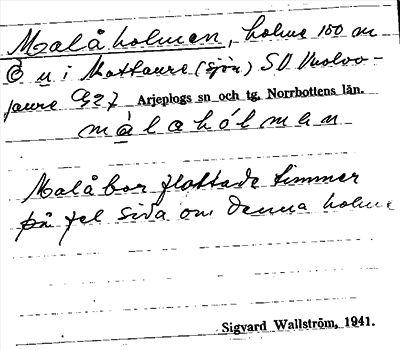 Malåholmen, holme 100 m
Ö u i Mattaure (sjön) SO Vuolvo-
jaure G27 Arjeplogs sn och tg, Norrbottens län.
målahólman
Malåbor flottade timmer
på fel sida om denna holme
Sigvard Wallström, 1941.